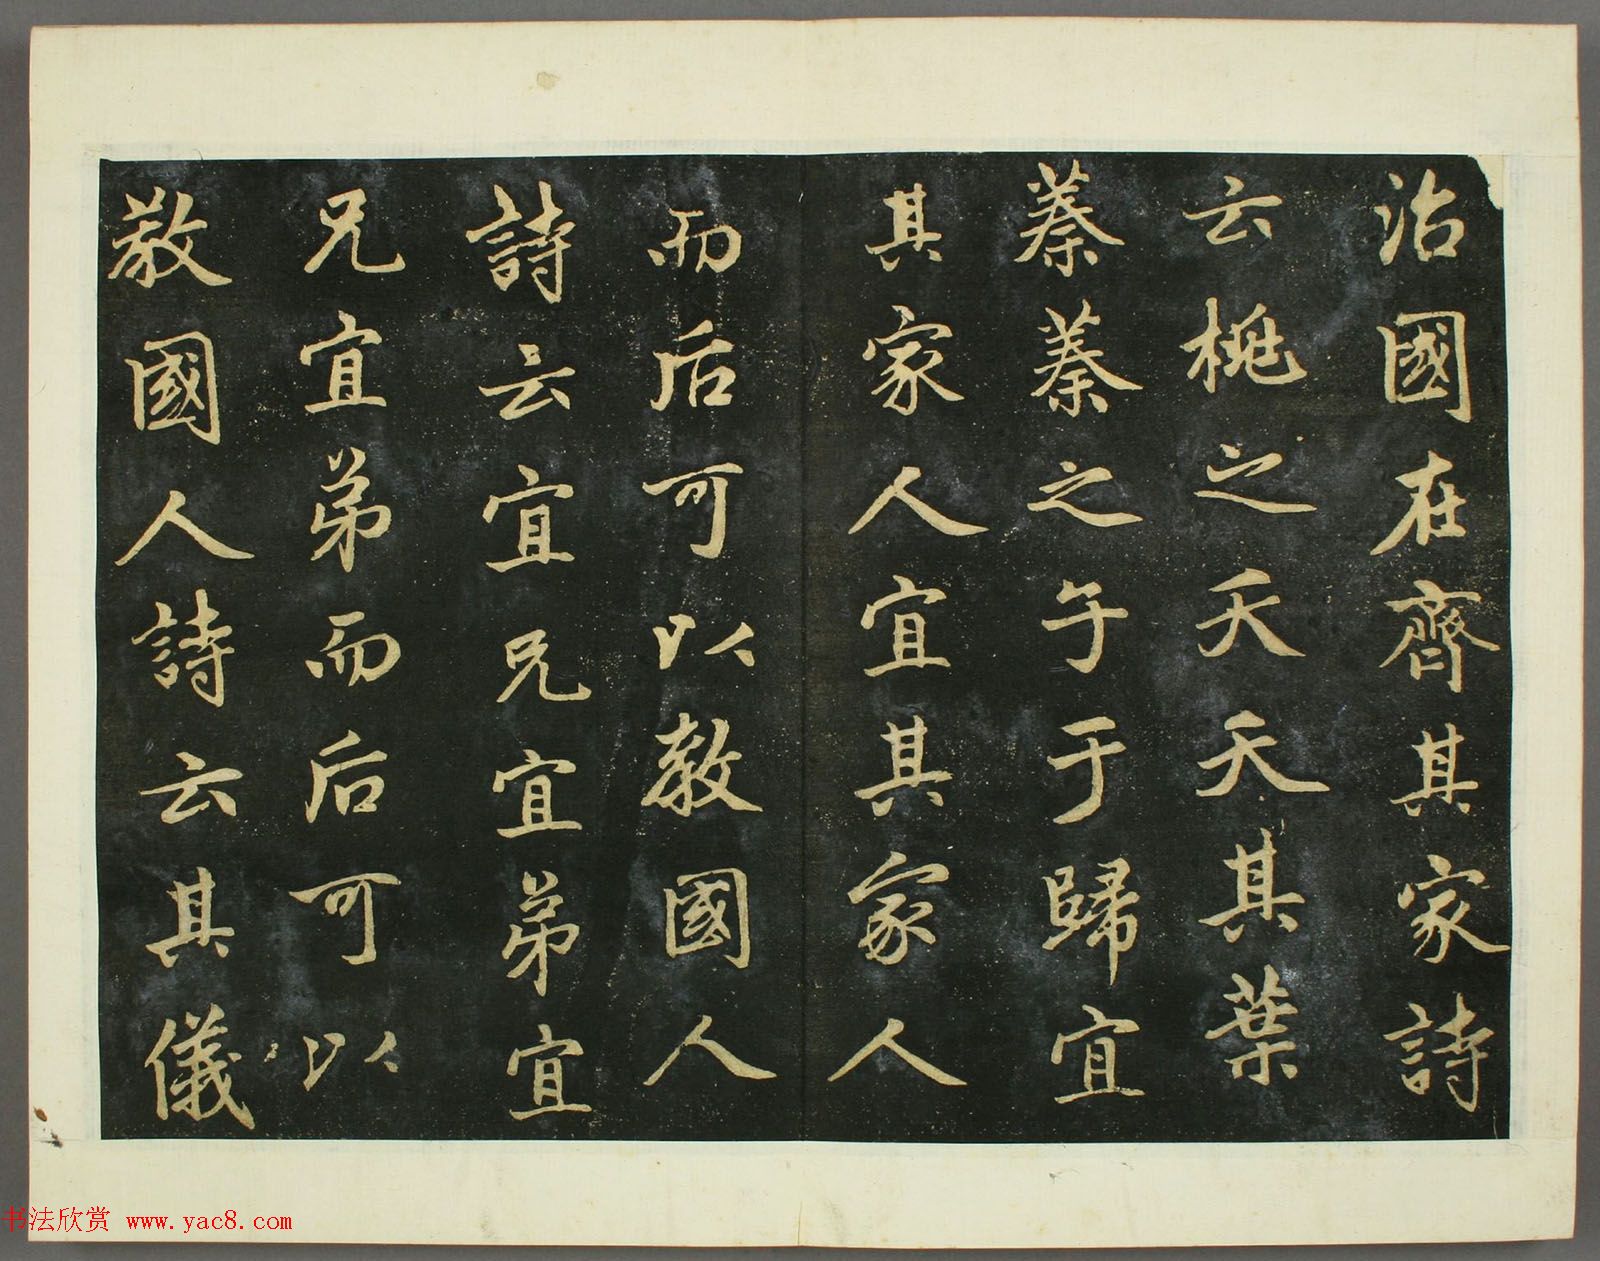 治國在齊其家詩
云桃之夭夭其葉
蓁蓁之子于歸宜
其家人宜其家人
而后可以教國人
詩云宜兄宜弟宜
兄宜弟而后可以
教國人詩云其儀
书法欣赏 www.yac8.com